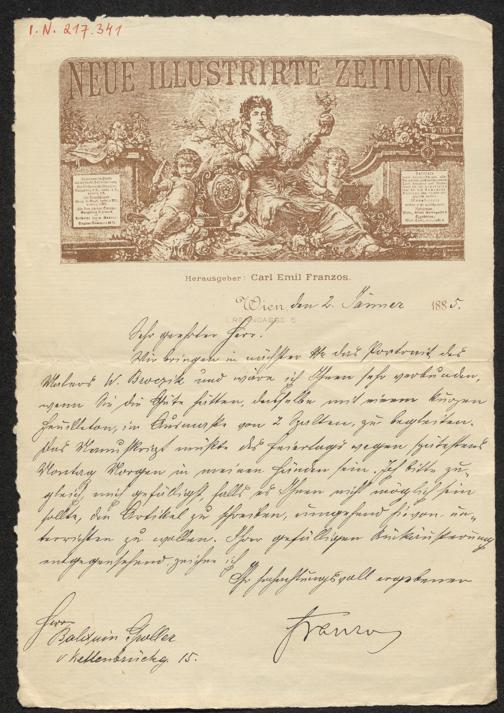 I.N. 217.341
NEUE ILLUSTRIRTE ZEITUNG
Herausgeber: Carl Emil Franzos.
Wien, den 2. Jänner 1885.
Sehr geehrter Herr.
Wir bringen in nächster No das Portrait des
Malers W. Brozik und wäre ich Ihnen sehr verbunden,
wenn Sie die Güte hätten, dasselbe mit einem kurzen
Feuilleton, im Ausmaße von 2 Spalten, zu begleiten.
Das Manuskript müßte des Feiertags wegen spätestens
Montag Morgen in meinen Händen sein. Ich bitte zu-
gleich mich gefälligst, falls es Ihnen nicht möglich sein
sollte, den Artikel zu schreiben, umgehend hievon un-
terrichten zu wollen. Ihrer gefälligen Rückäußerung
entgegensehend zeichne ich
Ihr hochachtungsvoll ergebener
Franzos
Herrn
Balduin Groller
Kettenbrückg. 15.